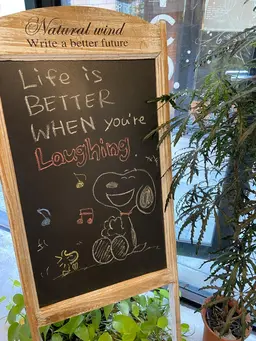 Natural wind
Write a better future
Life is
BETTER
WHEN you're
Laughing.